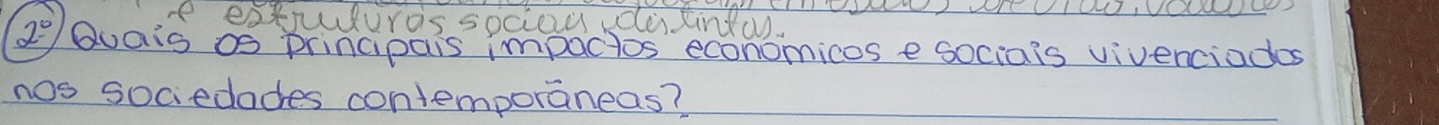 e estruturas sociais distintas.
2º) Quais os principais impactos econômicos e sociais vivenciados
nos sociedades contemporâneas?